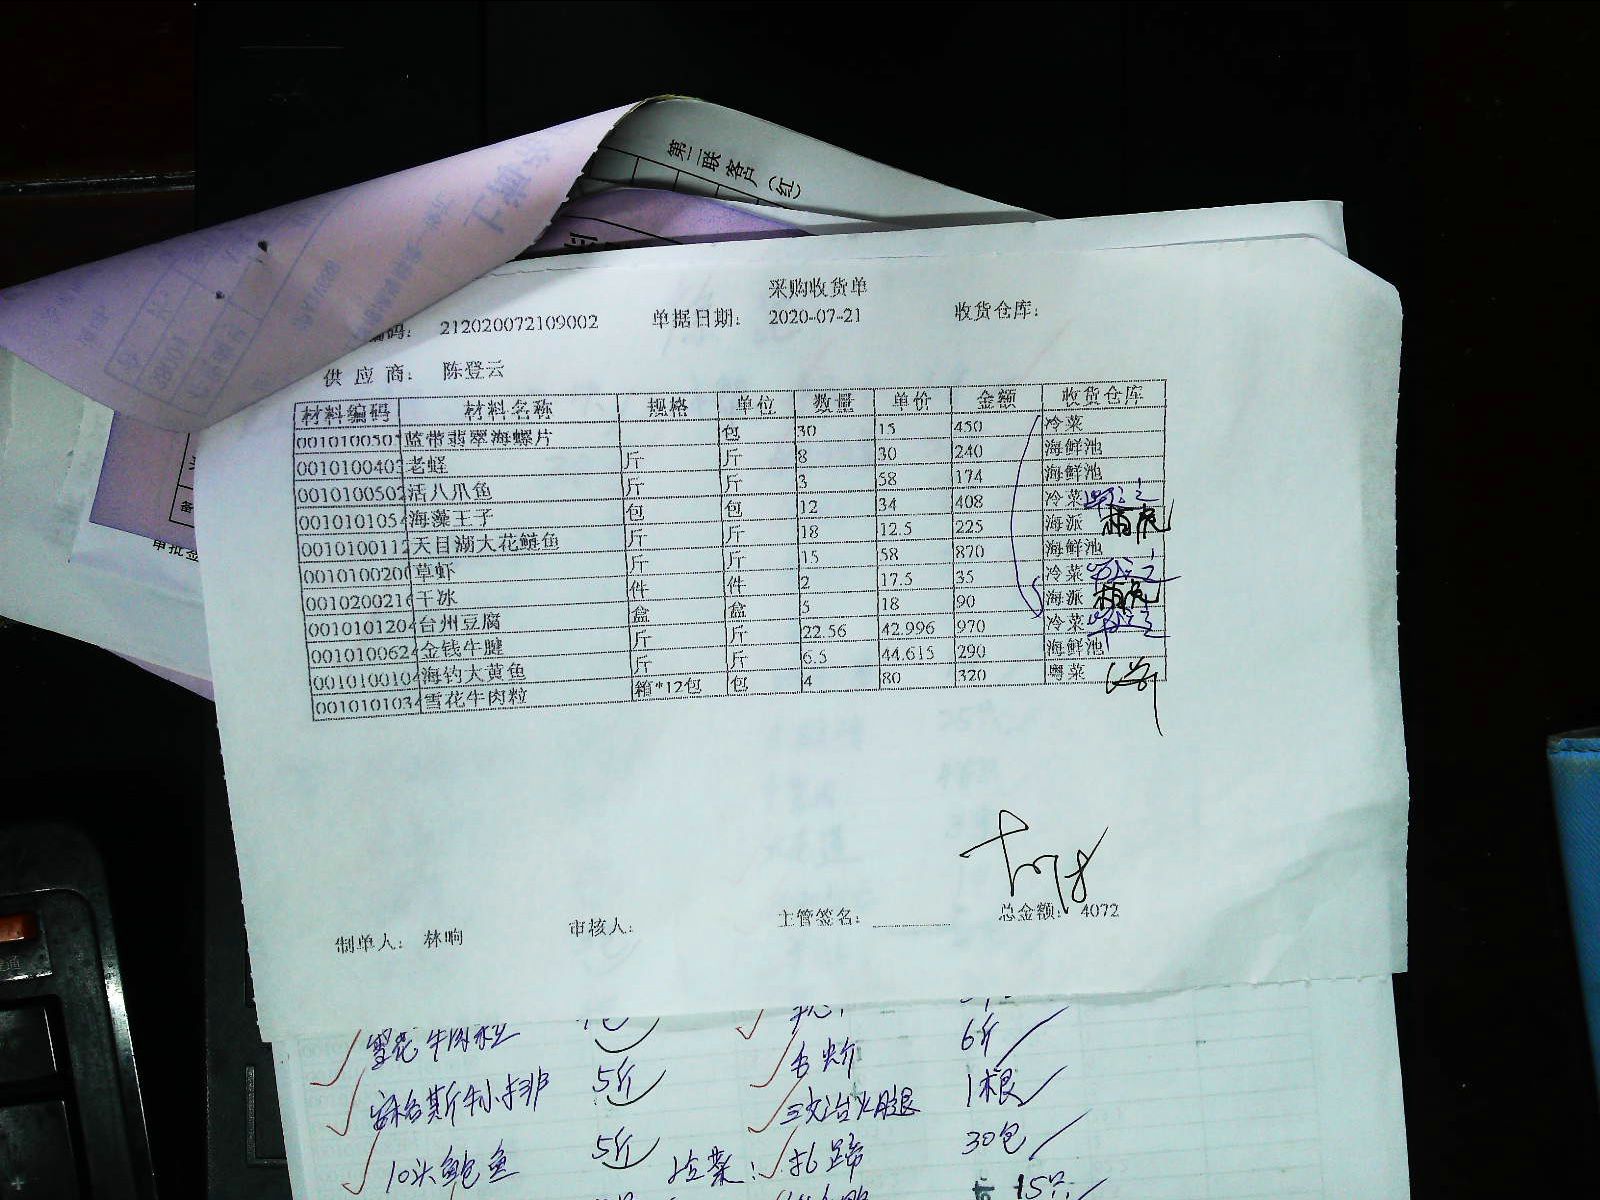 第二联客户(红)
采购收货单
编码: 212020072109002 单据日期: 2020-07-21 收货仓库:
供应商: 陈登云
材料编码 材料名称 规格 单位 数量 单价 金额 收货仓库
001010050 蓝带翡翠海螺片 包 30 15 450 冷菜
001010040 老蛏 斤 斤 8 30 240 海鲜池
0010100502 活八爪鱼 斤 斤 3 58 174 海鲜池
001010105 海藻王子 包 包 12 34 408 冷菜
001010011 天目湖大花鲢鱼 斤 斤 18 12.5 225 海派
001010020 草虾 斤 斤 15 58 870 海鲜池
001020021 干冰 件 件 2 17.5 35 冷菜
001010120 台州豆腐 盒 盒 5 18 90 海派
001010062 金钱牛腱 斤 斤 22.56 42.996 970 冷菜
001010010 海钓大黄鱼 斤 斤 6.5 44.615 290 海鲜池
001010103 雪花牛肉粒 箱*12包 包 4 80 320 粤菜
制单人: 林响 审核人: 主管签名: 总金额: 4072
雪花牛肉粒
6斤
安格斯牛小排 5斤 三文治火腿 1根
10头鲍鱼 5斤 冷菜: 30包
15只
审批签